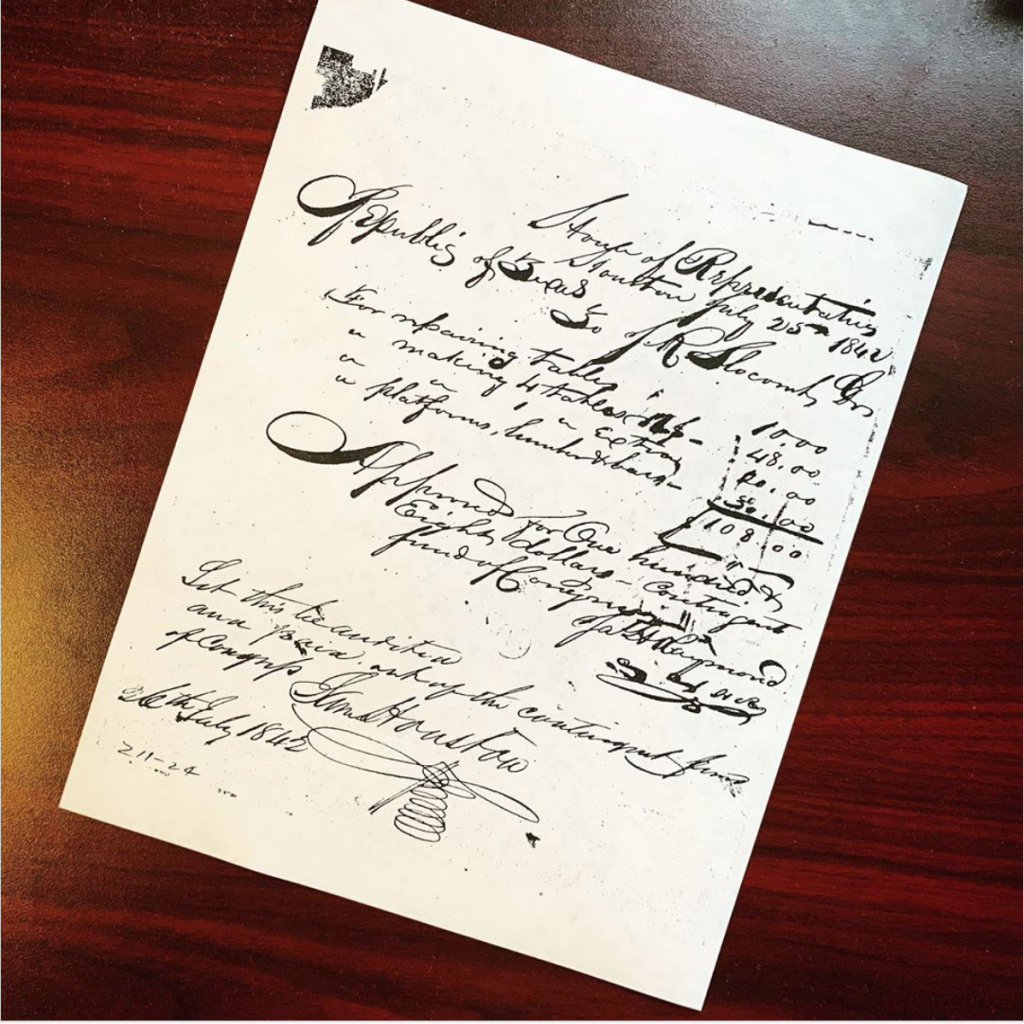 House of Representatives
Houston July 25th 1842
Republic of Texas
To J R Slocomb Dr
For repairing tables 10.00
" making 4 tables 48.00
" " " extra 20.00
" platforms, 30.00
$108.00
Approved for One hundred &
Eight dollars - Contingent
fund of Congress
Raymond
Let this be audited
and paid out of the contingent fund
of Congress Sam Houston
26th July 1842
211-24